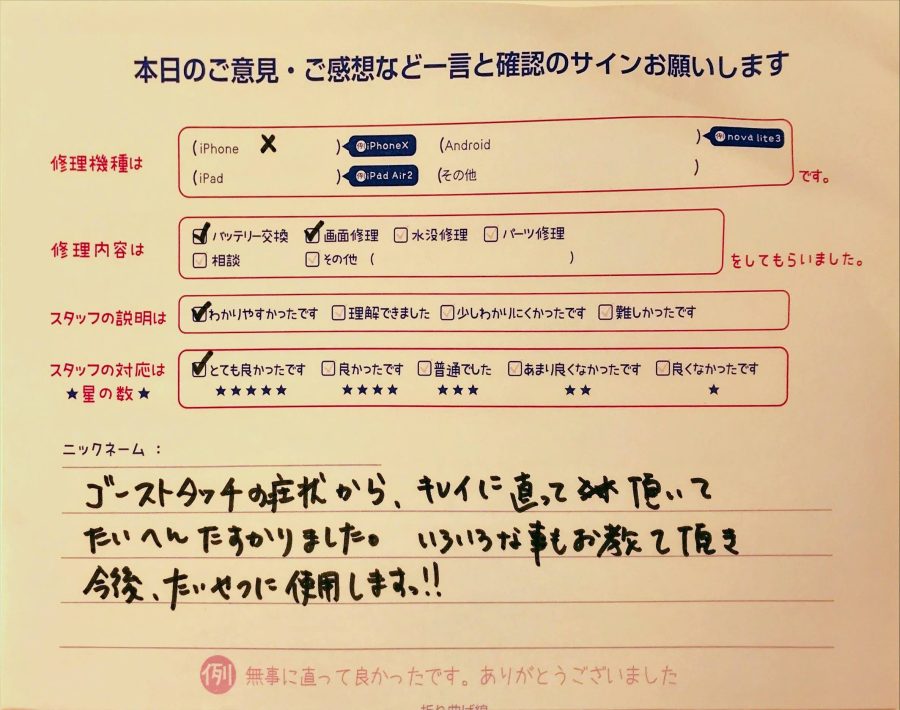 本日のご意見・ご感想など一言と確認のサインお願いします
修理機種は
(iPhone X ) 例iPhoneX (Android ) 例nova lite3
(iPad ) 例iPad Air2 (その他 )
です。
修理内容は
バッテリー交換 画面修理 水没修理 パーツ修理
相談 その他 ( )
をしてもらいました。
スタッフの説明は わかりやすかったです 理解できました 少しわかりにくかったです 難しかったです
スタッフの対応は とても良かったです 良かったです 普通でした あまり良くなかったです 良くなかったです
★星の数★ ★★★★★ ★★★★ ★★★ ★★ ★
ニックネーム：
ゴーストタッチの症状から、キレイに直って 頂いて
たいへんたすかりました。 いろいろな事もお教えて頂き
今後、たいせつに使用しますっ!!
例 無事に直って良かったです。ありがとうございました